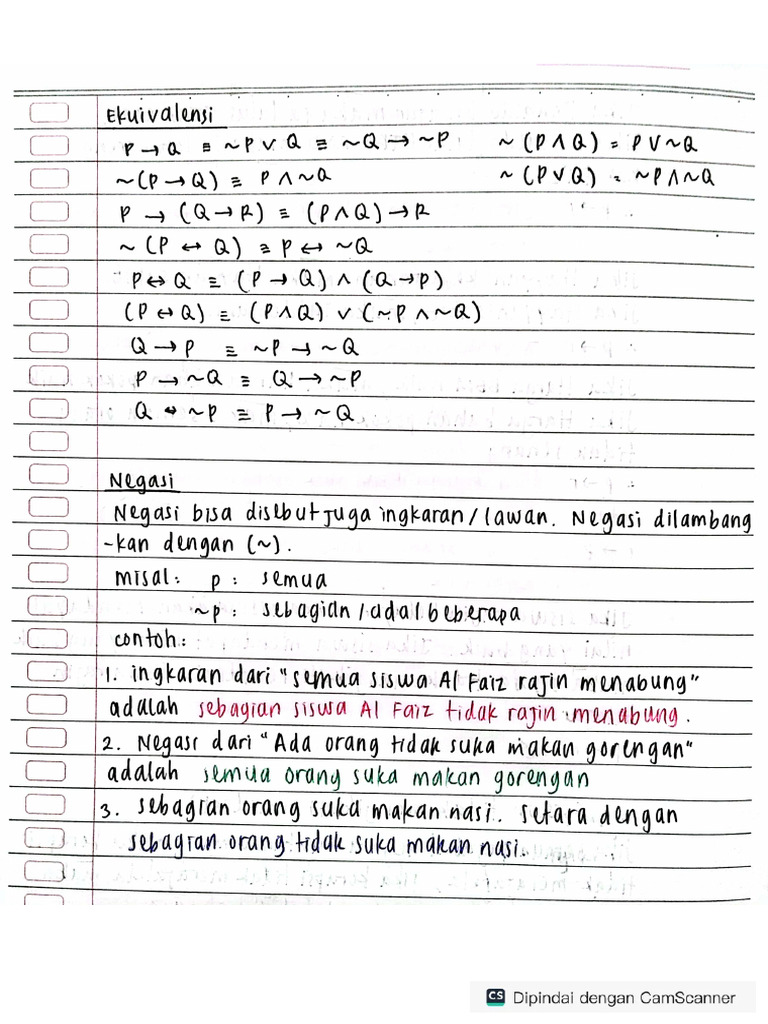 Ekuivalensi
P → Q ≡ ~P ∨ Q ≡ ~Q → ~P ~ (P ∧ Q) = P ∨ ~Q
~(P → Q) ≡ P ∧ ~Q ~ (P ∨ Q) = ~P ∧ ~Q
P → (Q → R) ≡ (P ∧ Q) → R
~ (P ↔ Q) ≡ P ↔ ~Q
P ↔ Q ≡ (P → Q) ∧ (Q → P)
(P ↔ Q) ≡ (P ∧ Q) ∨ (~P ∧ ~Q)
Q → P ≡ ~P → ~Q
P → ~Q ≡ Q → ~P
Q ↔ ~P ≡ P → ~Q
Negasi
Negasi bisa disebut juga ingkaran / lawan. Negasi dilambang
-kan dengan (~).
misal: p : semua
~p : sebagian / ada / beberapa
contoh:
1. ingkaran dari "semua siswa Al Faiz rajin menabung"
adalah sebagian siswa Al Faiz tidak rajin menabung.
2. Negasi dari "Ada orang tidak suka makan gorengan"
adalah semua orang suka makan gorengan
3. sebagian orang suka makan nasi. setara dengan
sebagian orang tidak suka makan nasi.
CS Dipindai dengan CamScanner